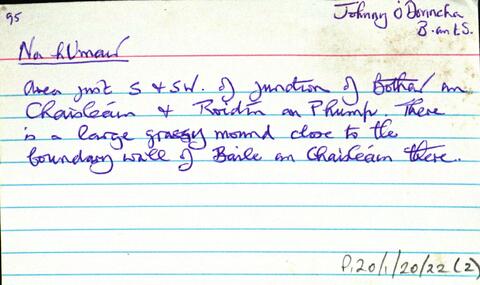 95
Johnny Ó Donncha
B. an tS.
Na hUmair
Area just S & SW. of junction of Bothar an
Chaisleáin & Roidín an Phump. There
is a large grassy mound close to the
boundary wall of Baile an Chaisleáin there.
P120/1/20/22 (2)